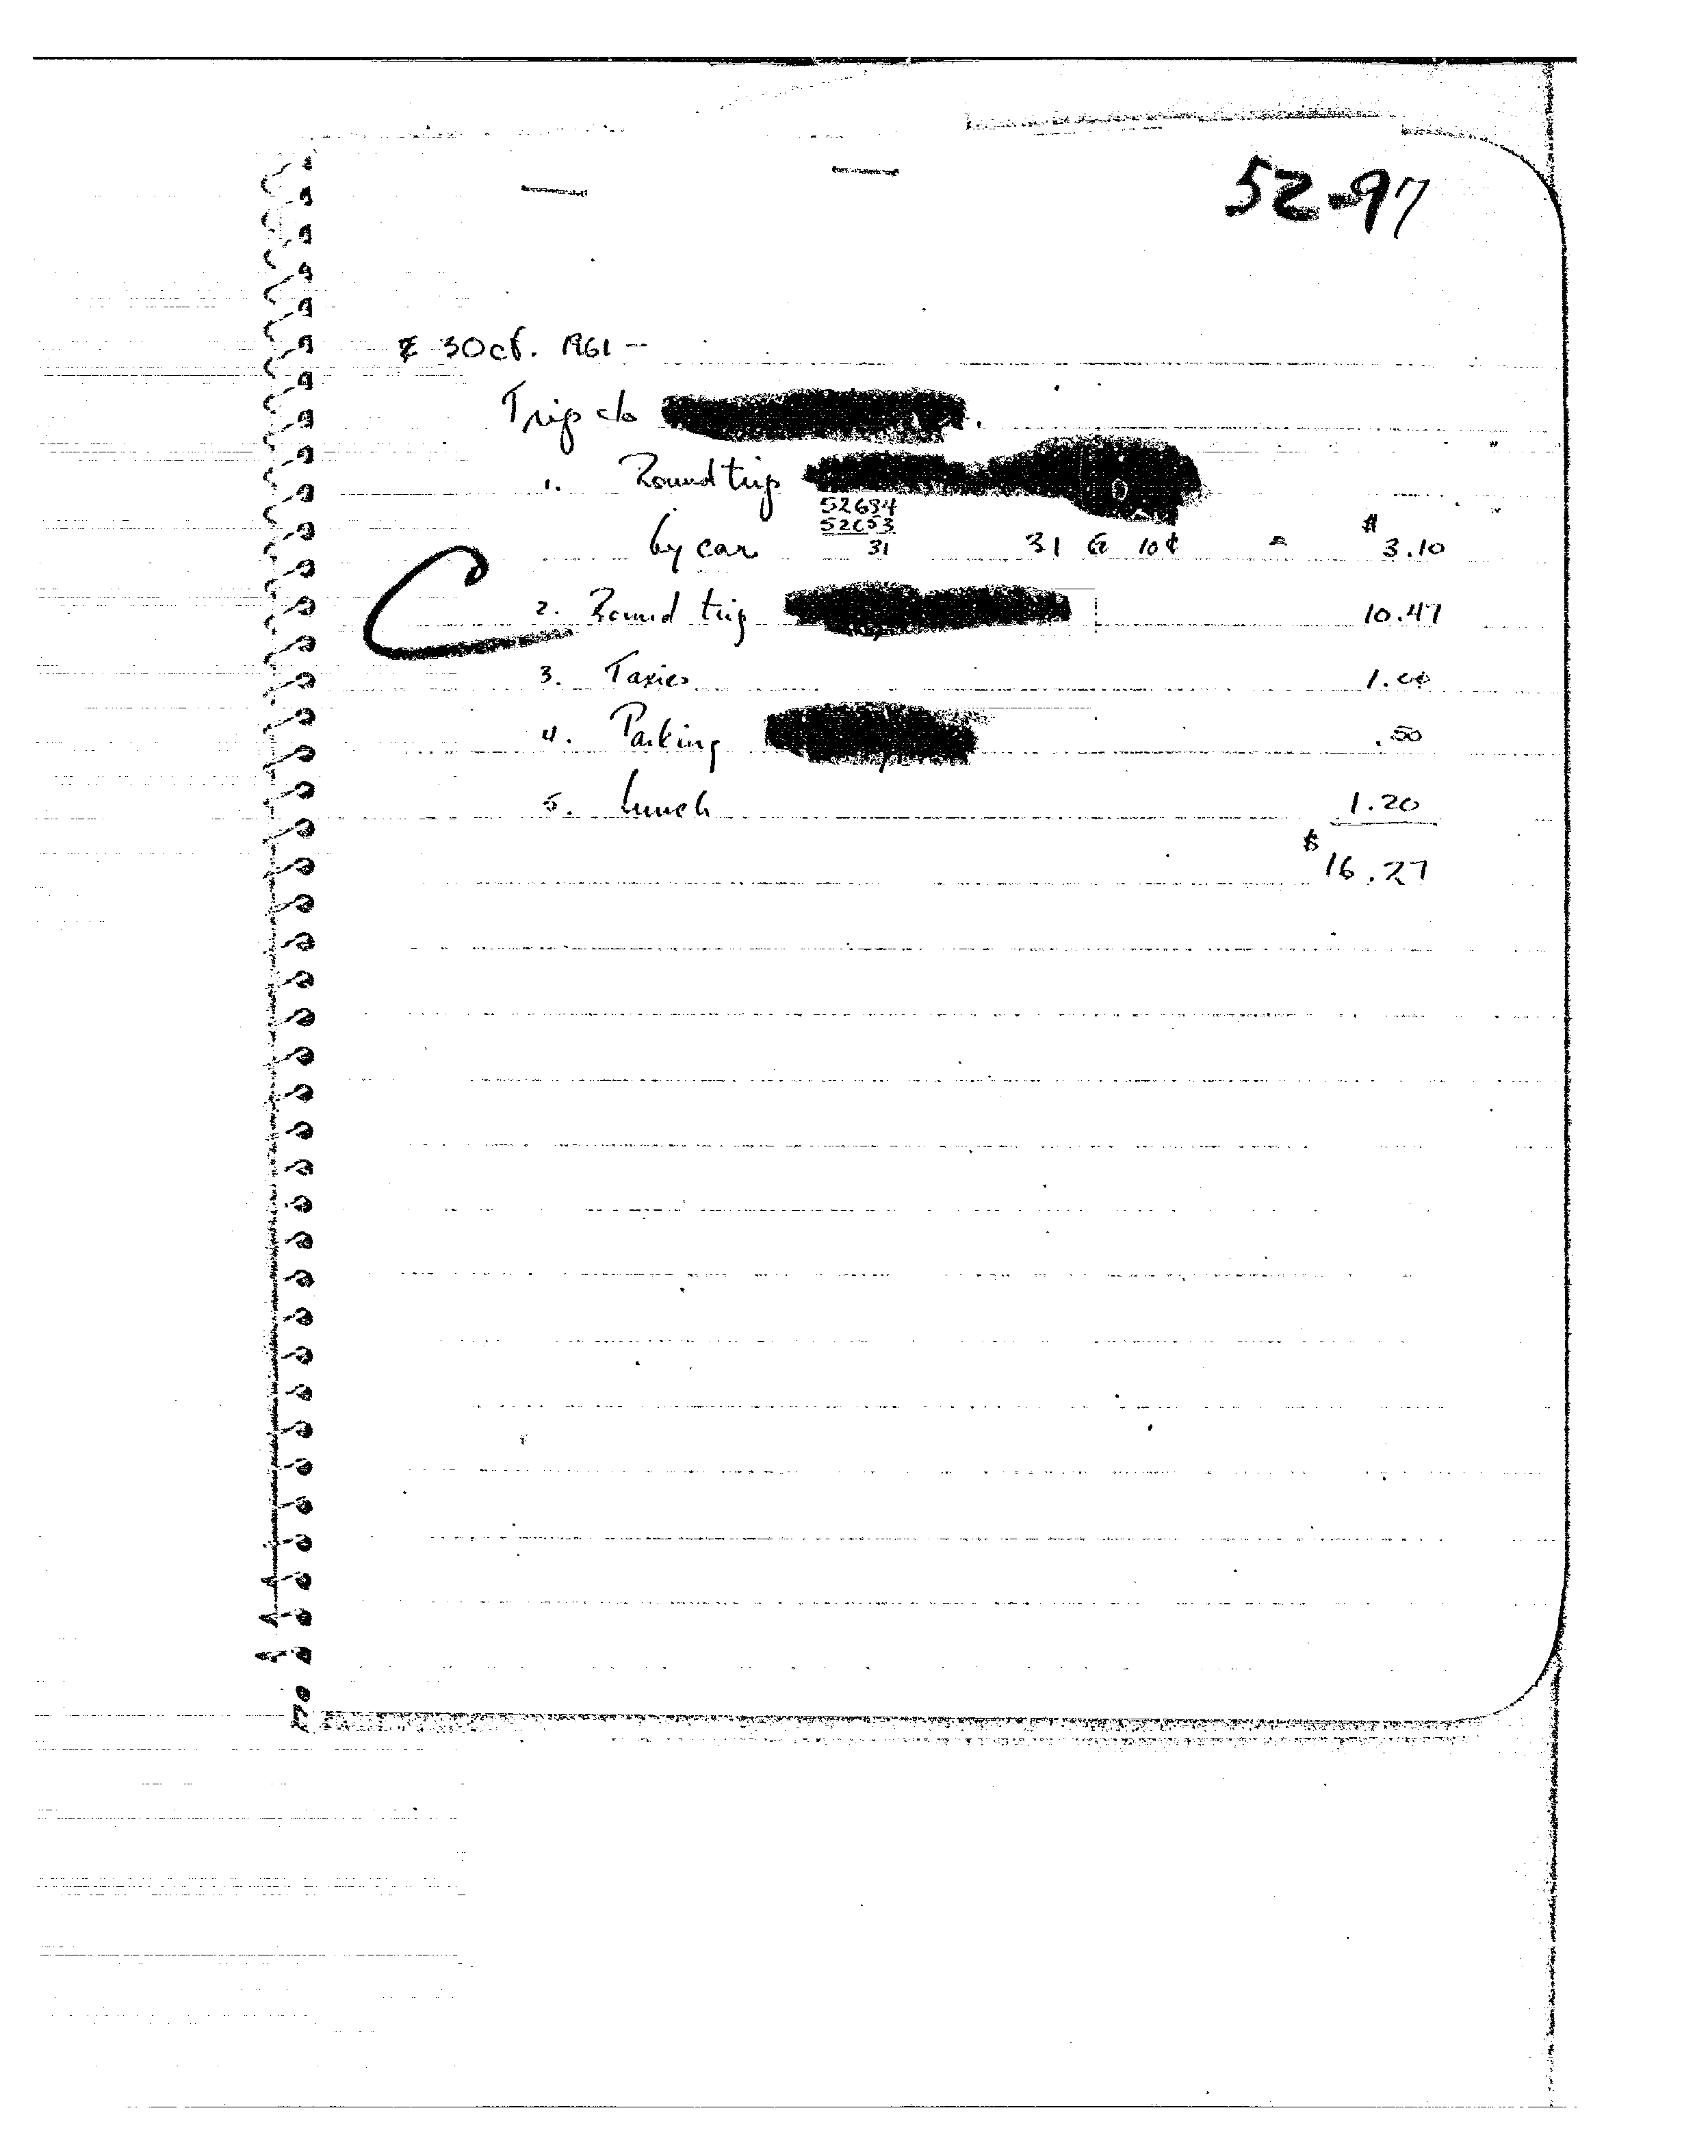 52-97
3 Oct. 1961 —
Trip to
1. Round trip
52684
52653
by car 31 31 @ 10¢ = $ 3.10
2. Round trip 10.47
3. Taxies 1.00
4. Parking .50
5. Lunch 1.20
$ 16.27